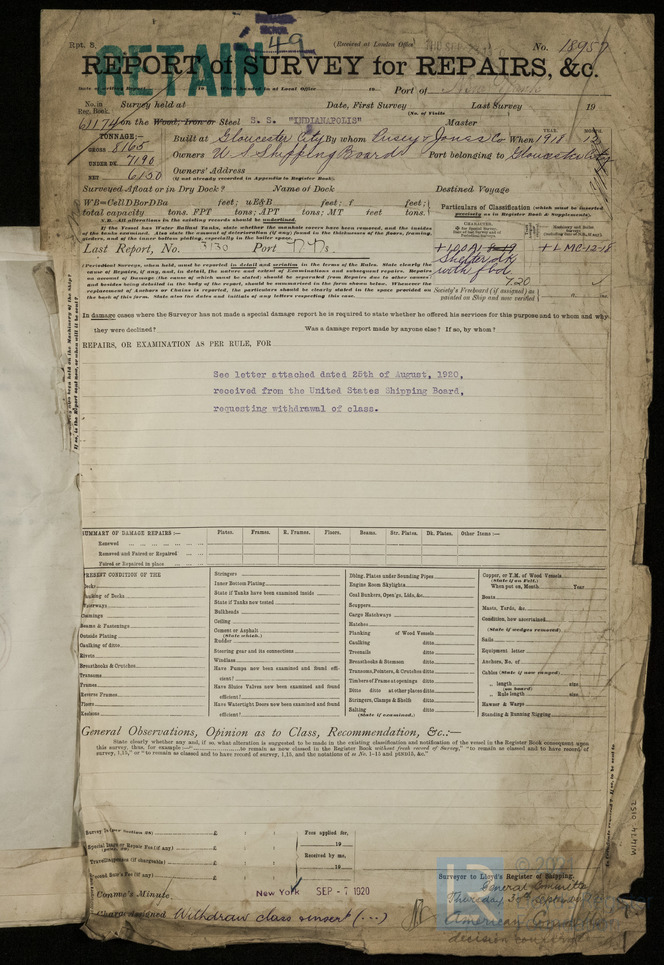 Rpt. 8.
49
(Received at London Office
RETAIN
No. 18957
REPORT of SURVEY for REPAIRS, &c.
Port of New York
No. in Reg. Book.
Survey held at
Date, First Survey
Last Survey
19
(No. of Visits
61174 on the Wood, Iron or Steel S. S. "INDIANAPOLIS"
Master
TONNAGE:—
GROSS 8165
UNDER DK. 7190
NET 6150
Built at Gloucester City By whom Pusey & Jones Co When 1918 12
YEAR. MONTH.
Owners U S Shipping Board Port belonging to Gloucester City
Owners' Address
(if not already recorded in Appendix to Register Book).
Surveyed Afloat or in Dry Dock? Name of Dock Destined Voyage
WB=CellDBorDBa feet; uE&B feet; f feet;
total capacity tons. FPT tons; APT tons; MT feet tons.
Particulars of Classification (which must be inserted precisely as in Register Book & Supplements).
If the Vessel has Water Ballast Tanks, state whether the manhole covers have been removed, and the insides
of the tanks examined. Also state the amount of deterioration (if any) found in the thicknesses of the floors, framing,
girders, and of the inner bottom plating, especially in the boiler space.
N.B.—All alterations in the existing records should be underlined.
CHARACTER.
Last Report, No. 3130 Port N.Ns.
+100A1
Shelter dk
with fbd
7,20
+ LMC-12-18
Society's Freeboard (if assigned) as
painted on Ship and now verified
In damage cases where the Surveyor has not made a special damage report he is required to state whether he offered his services for this purpose and to whom and why
they were declined? Was a damage report made by anyone else? If so, by whom?
REPAIRS, OR EXAMINATION AS PER RULE, FOR
See letter attached dated 25th of August, 1920,
received from the United States Shipping Board,
requesting withdrawal of class.
SUMMARY OF DAMAGE REPAIRS :—
Plates. Frames. R. Frames. Floors. Beams. Str. Plates. Dk. Plates. Other Items :—
Renewed
Removed and Faired or Repaired
Faired or Repaired in place
PRESENT CONDITION OF THE
Decks
Caulking of Decks
Waterways
Coamings
Beams & Fastenings
Outside Plating
Caulking of ditto
Rivets
Breasthooks & Crutches
Transoms
Frames
Reverse Frames
Floors
Keelsons
Stringers
Inner Bottom Plating
State if Tanks have been examined inside
State if Tanks now tested
Bulkheads
Ceiling
Cement or Asphalt
(State which.)
Rudder
Steering gear and its connections
Windlass
Have Pumps now been examined and found efficient?
Have Sluice Valves now been examined and found efficient?
Have Watertight Doors now been examined and found efficient?
Dblng. Plates under Sounding Pipes
Engine Room Skylights
Coal Bunkers, Open'gs, Lids, &c.
Scuppers
Cargo Hatchways
Hatches
Planking of Wood Vessels
Caulking ditto
Treenails ditto
Breasthooks & Stemson ditto
Transoms, Pointers, & Crutches ditto
Timbers of Frame at openings ditto
Ditto ditto at other places ditto
Stringers, Clamps & Shelfs ditto
Salting ditto
(State if examined.)
Copper, or Y.M. of Wood Vessels
(State if on Felt.)
When put on, Month Year
Boats
Masts, Yards, &c.
Condition, how ascertained
(State if wedges removed)
Sails
Equipment letter
Anchors, No. of
Cables (State if now ranged)
" length size
(on board)
" Rule length size
Hawser & Warps
Standing & Running Rigging
General Observations, Opinion as to Class, Recommendation, &c.:—
State clearly whether any and, if so, what alteration is suggested to be made in the existing classification and notification of the vessel in the Register Book consequent upon
this survey, thus, for example :—" to remain as now classed in the Register Book without fresh record of Survey," "to remain as classed and to have record of
survey, 1,15," or "to remain as classed and to have record of survey, 1,15, and the notations of
Survey Fee (per Section 28) £
Special Damage or Repair Fee (if any) £
Travelling Expenses (if chargeable) £
Second Surr's Fee (if any) £
Fees applied for,
19
Received by me,
19
Committee's Minute New York SEP - 7 1920
Character assigned Withdraw class & insert (...)
Surveyor to Lloyd's Register of Shipping.
General Committee
Thursday 30th September
American Committee's
decision concurred
W1474-0157